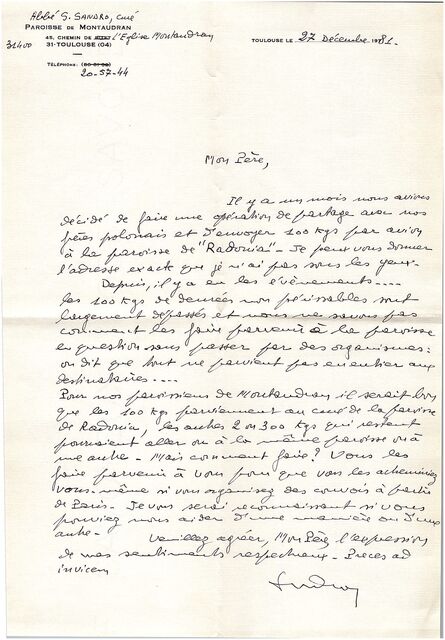 Abbé S. SANDRO, curé
PAROISSE DE MONTAUDRAN
45, CHEMIN DE l'Eglise Montaudran
31400 31-TOULOUSE (04)
TÉLÉPHONE: (80-81-98)
20-57-44
TOULOUSE LE 27 Décembre 1981.
Mon Père,
Il y a un mois nous avions
décidé de faire une opération de partage avec nos
frères polonais et d'envoyer 100 kgs par avion
à la paroisse de "Radonia" - Je peux vous donner
l'adresse exact que je n'ai pas sous les yeux.
Depuis, il y a eu les évènements....
les 100 kgs de denrées non périssables sont
largement dépassés et nous ne savons pas
comment les faire parvenir à la paroisse
en question sans passer par des organismes:
on dit que tout ne parvient pas en entier aux
destinataires....
Pour nos paroissiens de Montaudran il serait bon
que les 100 kgs parviennent au curé de la paroisse
de Radonia, les autres 2 ou 300 kgs qui restent
pourraient aller ou à la même paroisse ou à
une autre - Mais comment faire? Vous les
faire parvenir à vous pour que vous les acheminiez
vous-même si vous organisez des convois à partir
de Paris. Je vous serai reconnaissant si vous
pouviez nous aider d'une manière ou d'une
autre -
Veuillez agréer, Mon Père, l'expression
de mes sentiments respectueux - Preces ad
invicem
Sandro